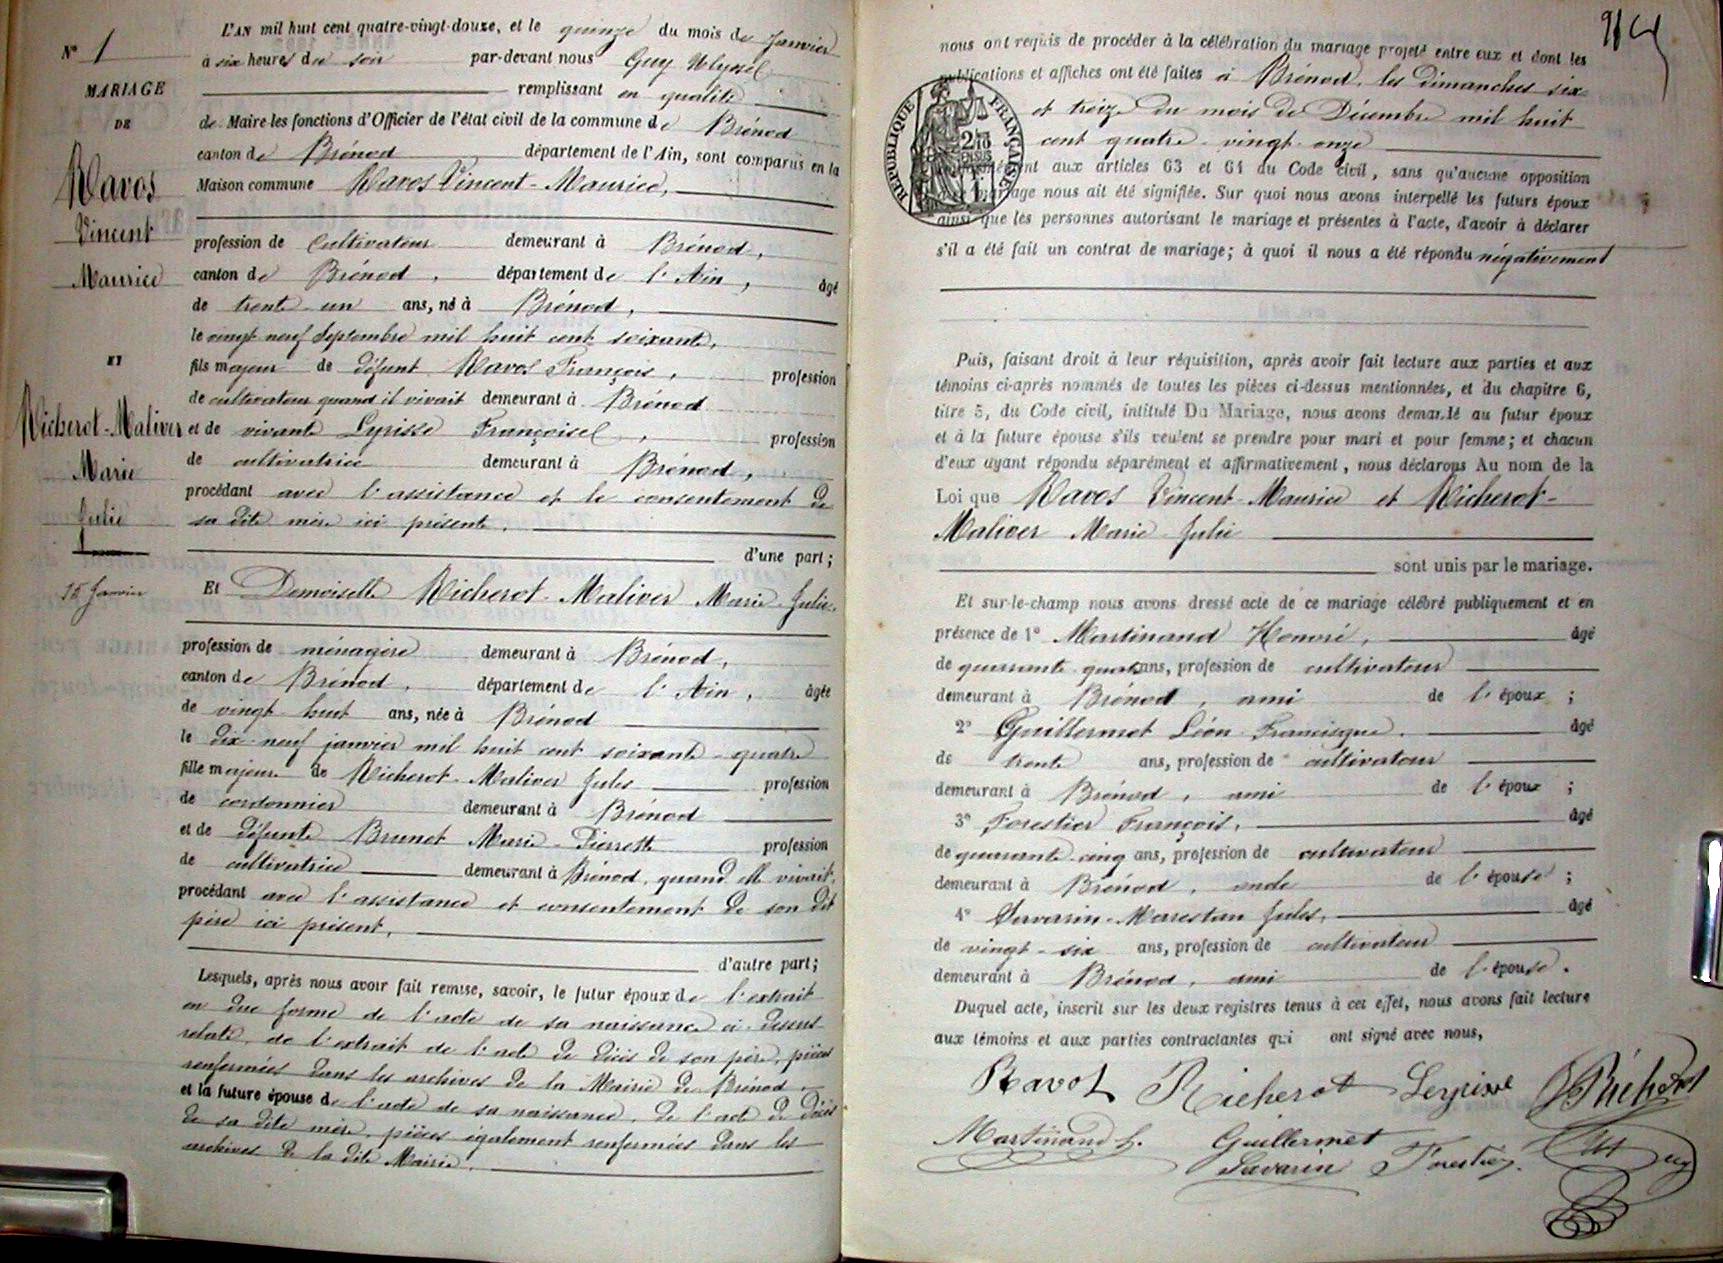 N° 1
MARIAGE
DE
Ravos
Vincent
Maurice
ET
Richerot-Maliver
Marie
Julie
15 Janvier
L'AN mil huit cent quatre-vingt-douze, et le quinze du mois de Janvier
à six heures du soir par-devant nous Guy Ulysse
remplissant en qualité
de Maire les fonctions d'Officier de l'état civil de la commune de Brénod
canton de Brénod département de l'Ain, sont comparus en la
Maison commune Ravos Vincent-Maurice,
profession de Cultivateur demeurant à Brénod,
canton de Brénod, département de l'Ain, âgé
de trente-un ans, né à Brénod,
le vingt neuf Septembre mil huit cent soixante,
fils majeur de défunt Ravos François, profession
de cultivateur quand il vivait demeurant à Brénod
et de vivante Lyrisse Françoise, profession
de cultivatrice demeurant à Brénod,
procédant avec l'assistance et le consentement de
sa dite mère ici présente.
d'une part;
Et Demoiselle Richerot-Maliver Marie-Julie,
profession de ménagère demeurant à Brénod,
canton de Brénod, département de l'Ain, âgée
de vingt-huit ans, née à Brénod
le dix-neuf janvier mil huit cent soixante-quatre
fille majeure de Richerot-Maliver Jules profession
de cordonnier demeurant à Brénod
et de défunte Brunet Marie-Pierrette profession
de cultivatrice demeurant à Brénod, quand elle vivait,
procédant avec l'assistance et consentement de son dit
père ici présent,
d'autre part;
Lesquels, après nous avoir fait remise, savoir, le futur époux de l'extrait
en due forme de l'acte de sa naissance ci-dessus
relaté, de l'extrait de l'acte de décès de son père, pièces
renfermées dans les archives de la Mairie de Brénod.
et la future épouse de l'acte de sa naissance, de l'acte de décès
de sa dite mère, pièces également renfermées dans les
archives de la dite Mairie.
nous ont requis de procéder à la célébration du mariage projeté entre eux et dont les
publications et affiches ont été faites à Brénod, les dimanches six
et treize du mois de Décembre mil huit
cent quatre-vingt-onze
RÉPUBLIQUE FRANÇAISE
aux articles 63 et 64 du Code civil, sans qu'aucune opposition
mariage nous ait été signifiée. Sur quoi nous avons interpellé les futurs époux
ainsi que les personnes autorisant le mariage et présentes à l'acte, d'avoir à déclarer
s'il a été fait un contrat de mariage; à quoi il nous a été répondu négativement
Puis, faisant droit à leur réquisition, après avoir fait lecture aux parties et aux
témoins ci-après nommés de toutes les pièces ci-dessus mentionnées, et du chapitre 6,
titre 5, du Code civil, intitulé Du Mariage, nous avons demandé au futur époux
et à la future épouse s'ils veulent se prendre pour mari et pour femme; et chacun
d'eux ayant répondu séparément et affirmativement, nous déclarons Au nom de la
Loi que Ravos Vincent-Maurice et Richerot-
Maliver Marie-Julie
sont unis par le mariage.
Et sur-le-champ nous avons dressé acte de ce mariage célébré publiquement et en
présence de 1° Martinand Honoré, âgé
de quarante-quatre ans, profession de cultivateur
demeurant à Brénod, ami de l'époux;
2° Guillermet Léon-Francisque. âgé
de trente ans, profession de cultivateur
demeurant à Brénod, ami de l'époux;
3° Forestier François, âgé
de quarante-cinq ans, profession de cultivateur
demeurant à Brénod, oncle de l'épouse;
4° Savarin-Marestan Jules, âgé
de vingt-six ans, profession de cultivateur
demeurant à Brénod, ami de l'épouse.
Duquel acte, inscrit sur les deux registres tenus à cet effet, nous avons fait lecture
aux témoins et aux parties contractantes qui ont signé avec nous,
Ravot Richerot Leyrisse Richerot
Martinand h. Guillermet
Savarin Forestier Guy